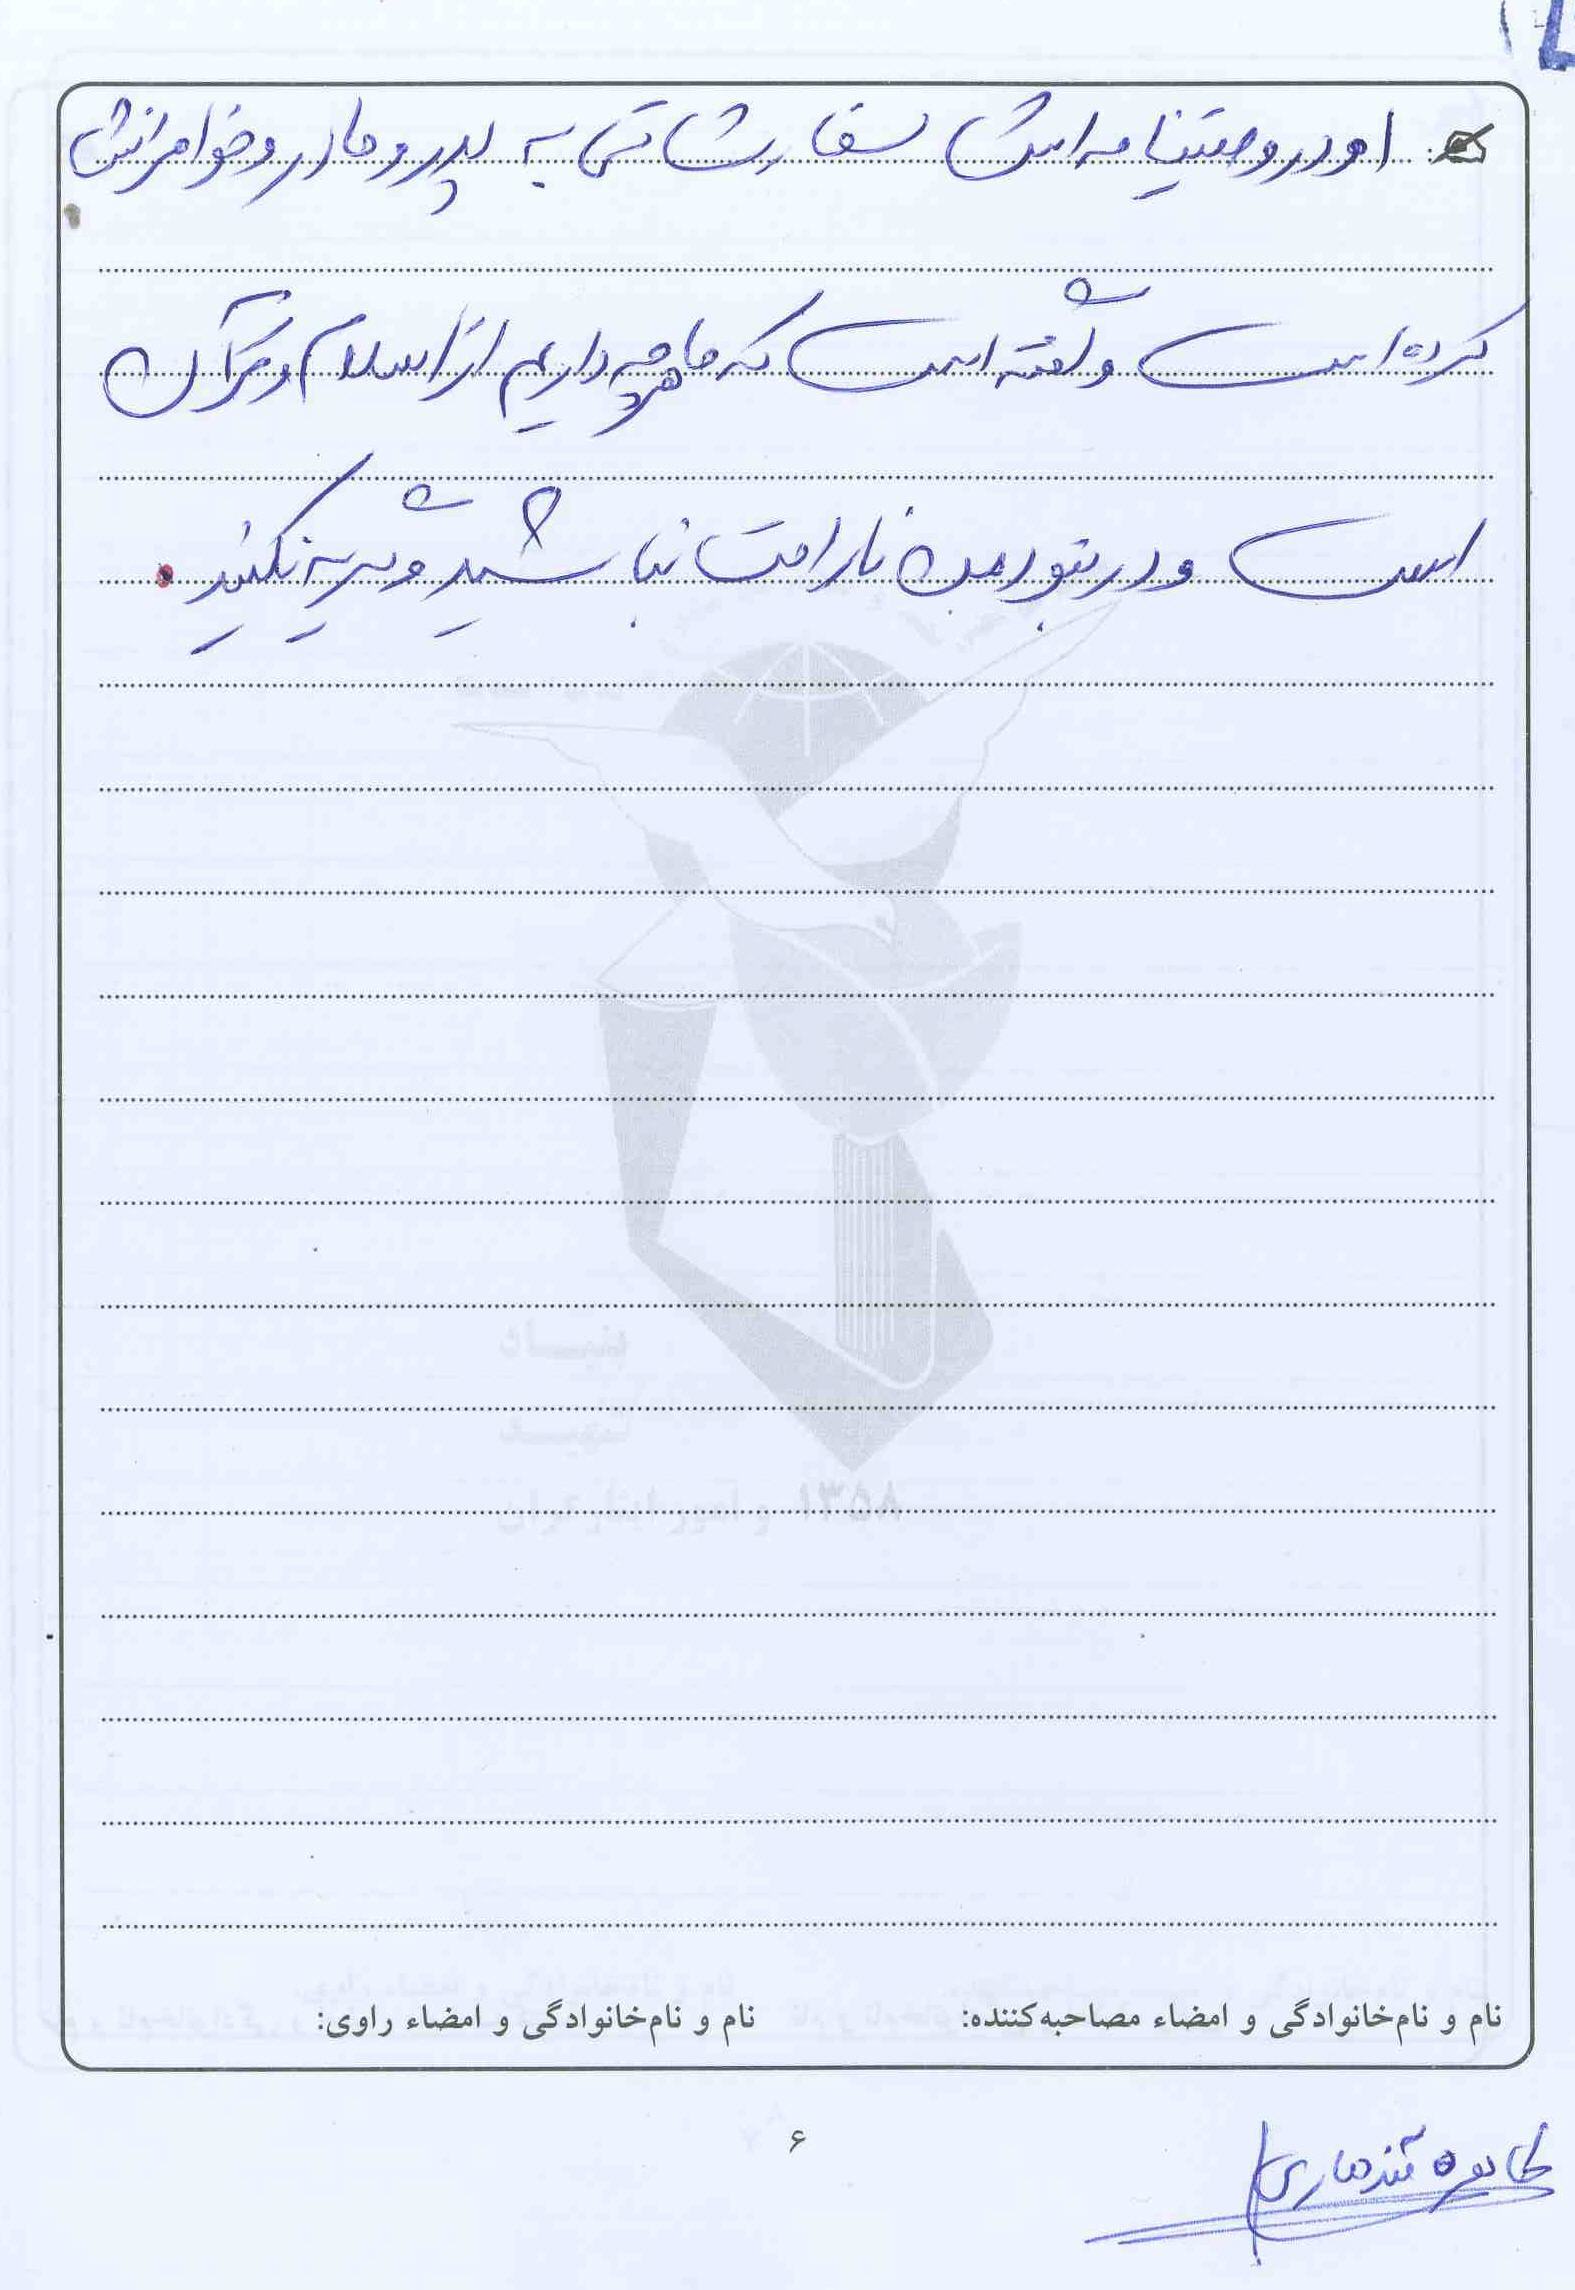 او در وصیتنامه اش سفارشاتی به پدر و مادر و خواهرانش
کرده است و گفته است که ما هرچه داریم از اسلام و قرآن
است و در نبود من ناراحت نباشید و گریه نکنید.
بنیاد
شهید
و امور ایثارگران ۱۳۵۸
نام و نام‌خانوادگی و امضاء مصاحبه‌کننده: نام و نام‌خانوادگی و امضاء راوی:
۶
طاهره قندهاری